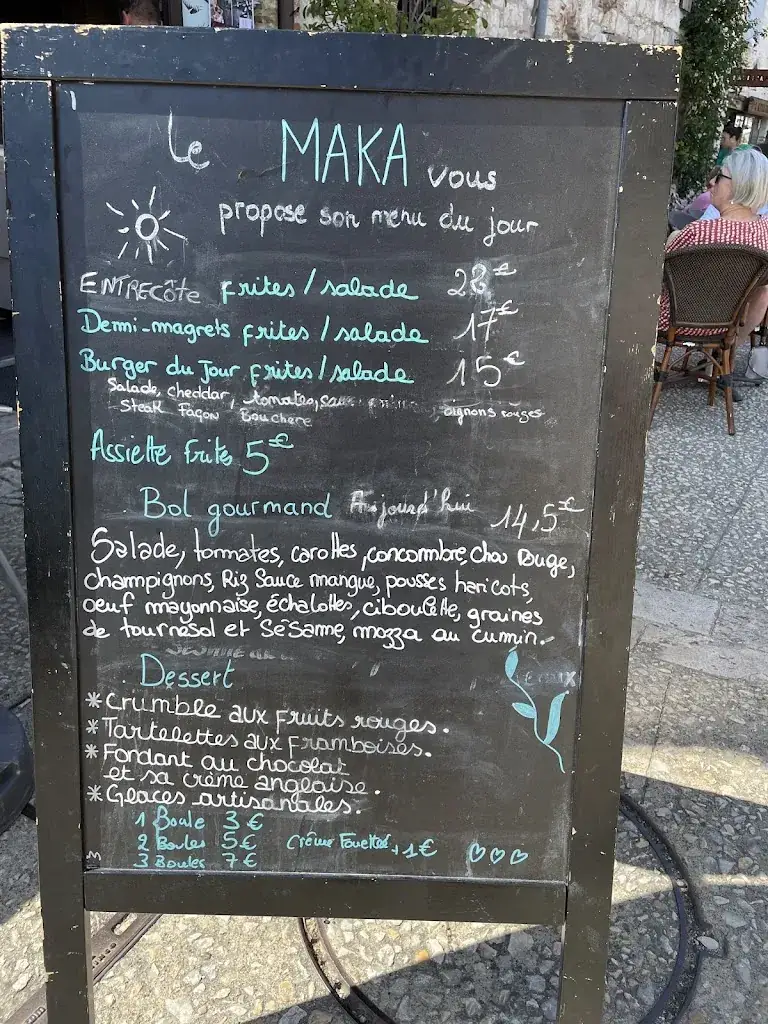 Le MAKA vous
propose son menu du jour
ENTRECÔTE frites / salade 28€
Demi-magrets frites / salade 17€
Burger du Jour frites / salade 15€
Salade, cheddar, tomates, oignons rouges
Steak Façon Bouchère
Assiette frites 5€
Bol gourmand Aujourd'hui 14,5€
Salade, tommates, carottes, concombre, chou rouge,
champignons, Riz Sauce mangue, pousses haricots,
oeuf mayonnaise, échalottes, ciboulette, graines
de tournesol et sésame, mozza au cumin.
Dessert
* Crumble aux fruits rouges.
* Tartelettes aux framboises.
* Fondant au chocolat
et sa crème anglaise.
* Glaces artisanales.
1 Boule 3€
2 Boules 5€ Crème Fouettée +1€
3 Boules 7€